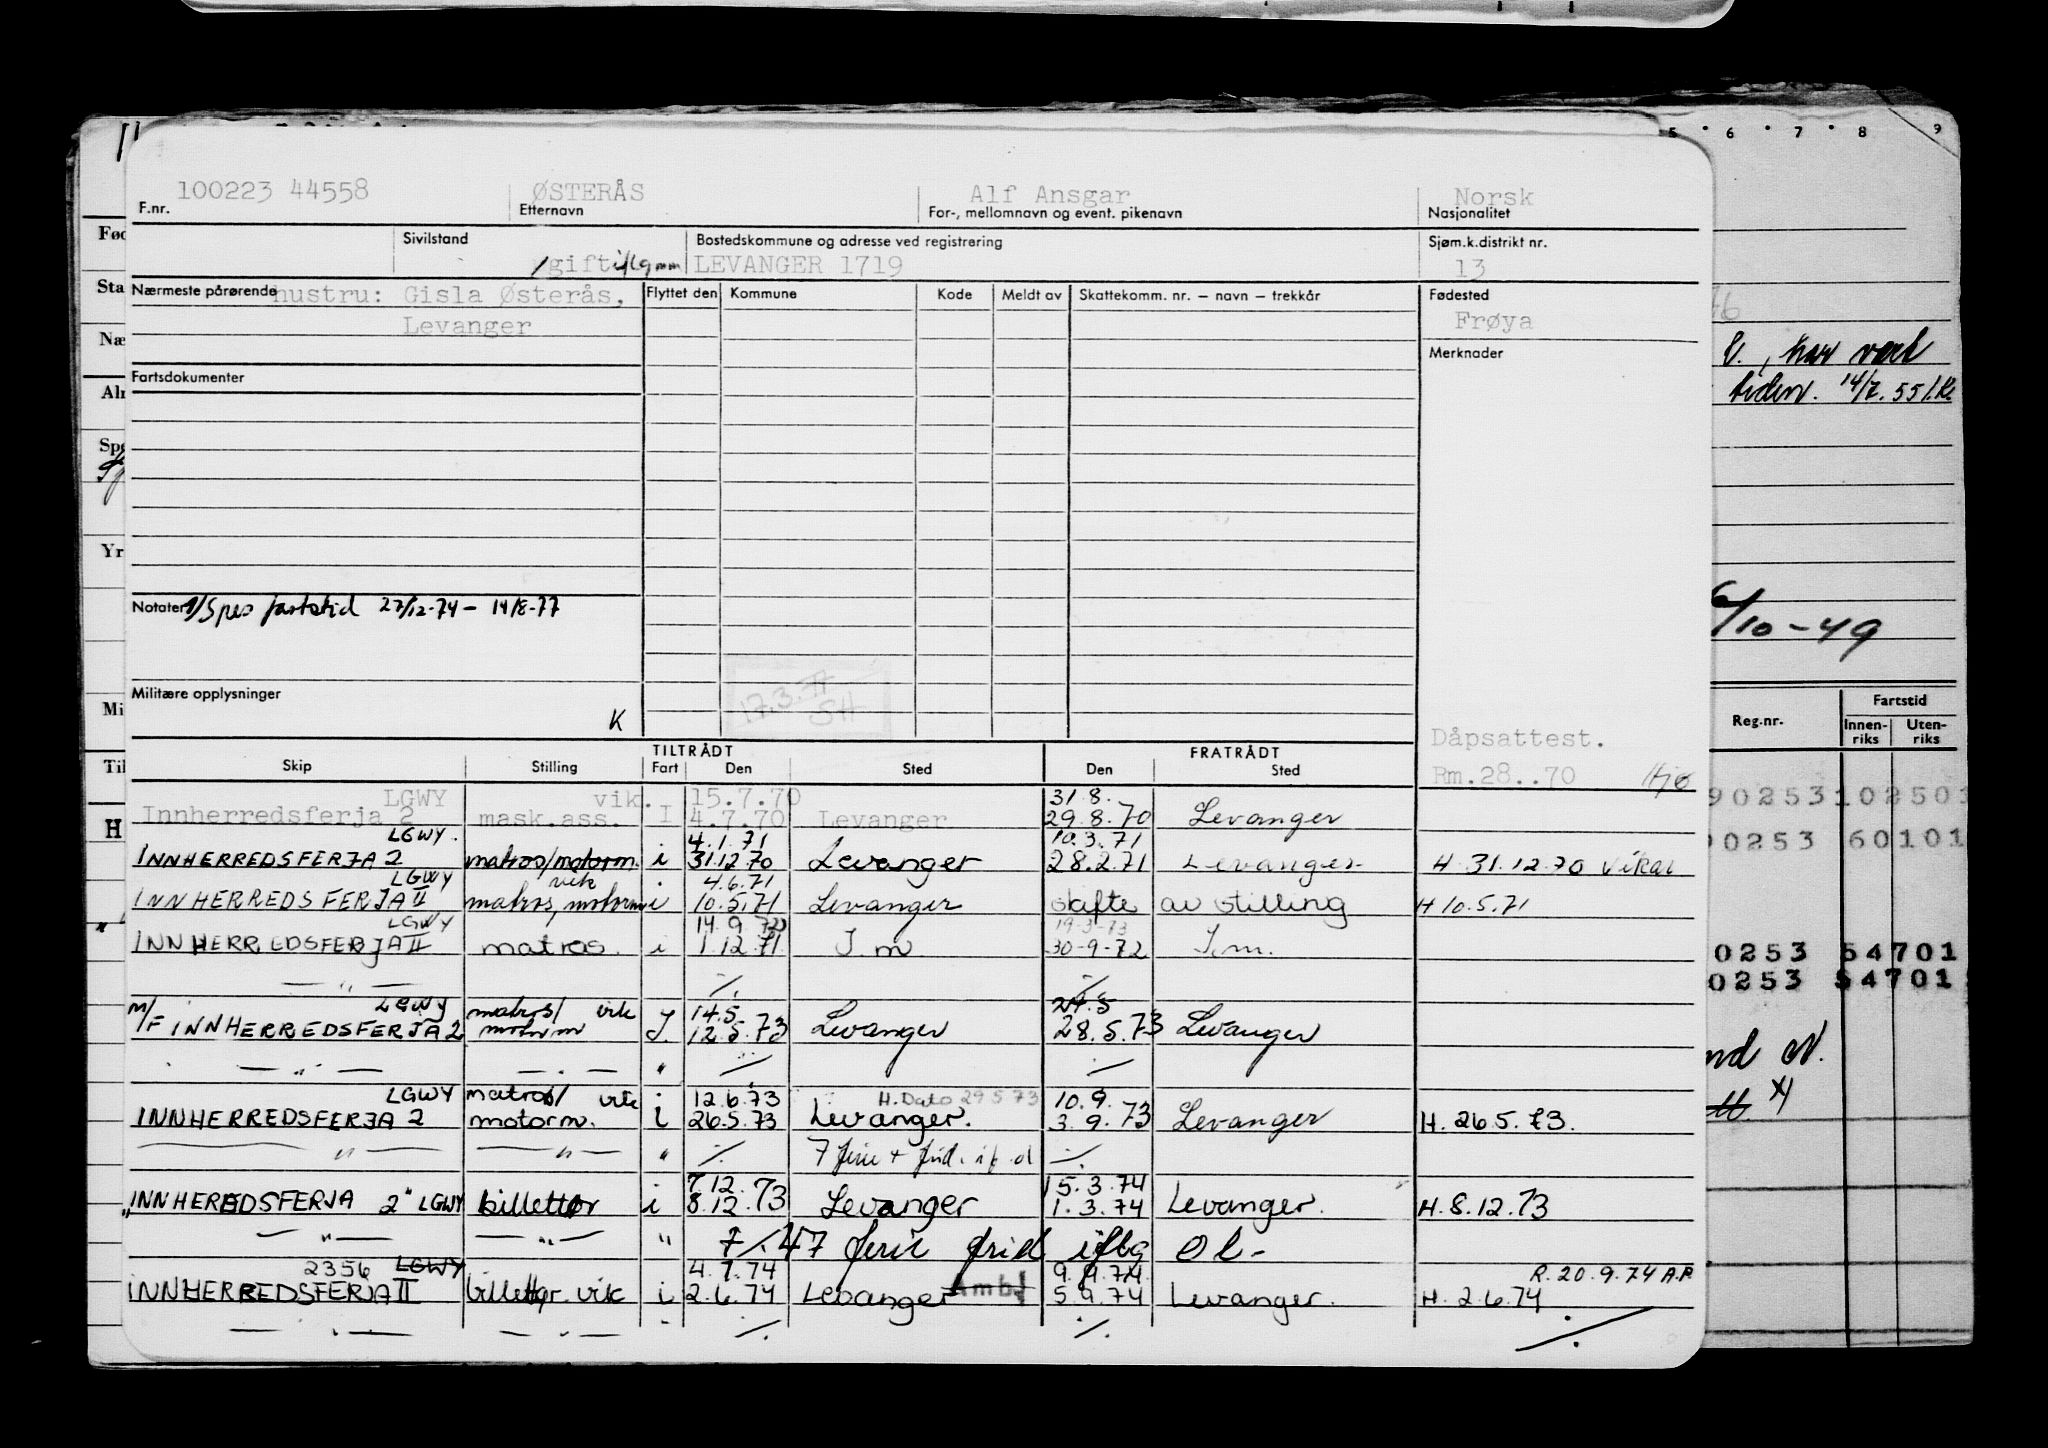 100223 44558 ØSTERÅS Alf Ansgar Norsk
F.nr. Etternavn For-, mellomnavn og event. pikenavn Nasjonalitet
Sivilstand Bostedskommune og adresse ved registrering Sjøm.k.distrikt nr.
gift LEVANGER 1719 13
Nærmeste pårørende hustru: Gisla Østerås, Flyttet den Kommune Kode Meldt av Skattekomm. nr. – navn – trekkår Fødested
Levanger Frøya
Merknader
Fartsdokumenter
Notater Spes fartstid 27/12-74 – 14/8-77
17.3.77
SH
Militære opplysninger
K
Dåpsattest.
Rm.28..70
TILTRÅDT FRATRÅDT
Skip Stilling Fart Den Sted Den Sted
LGWY vik. 15.7.70 31.8.
Innherredsferja 2 mask.ass. I 4.7.70 Levanger 29.8.70 Levanger
LGWY. 4.1.71 10.3.71
INNHERREDSFERJA 2 matros/motorm. i 31.12.70 Levanger 28.2.71 Levanger H 31.12.70 Vikar
LGWY vik 4.6.71
INNHERREDSFERJA II matros, motorm i 10.5.71 Levanger skifte av stilling H 10.5.71
LGWY 14.9.72 19-3-73
INNHERREDSFERJA II matros. i 1.12.71 I.m. 30-9-72 I.m.
— " — ./. ./.
LGWY matros/ vik 14.5. 29.5
M/F INNHERREDSFERJA 2 motorm I. 12.5.73 Levanger 28.5.73 Levanger
— " — — " — " ./. ./.
LGWY matros/ vik 12.6.73 H. Dato 29 5 73 10.9.
INNHERREDSFERJA 2 motorm. i 26.5.73 Levanger. 3.9.73 Levanger H. 26.5.73.
— " — — " — " ./. 7 ferie + frid. ./.
7.12.73 15.3.74
"INNHEREDSFERJA 2" LGWY billettør i 8.12.73 Levanger 1.3.74 Levanger. H. 8.12.73
— " — — " — " ./. 47 ferie frid iflg
2356 LGWY 4.7.74 9.9.74. R. 20.9.74 A.P.
INNHERREDSFERJA II billettør. vik i 2.6.74 Levanger Amb. 5.9.74 Levanger. H. 2.6.74
— " — — " — " ./. ./. ./.
5 6 7 8 9
46
har vært
tiden. 14/7.55
6/10-49
Reg.nr. Fartstid
Innen-riks Uten-riks
90253 102503
90253 60101
0253 54701
0253 54701
Fød
Sta
Næ
Alm
Spe
Yr
Mi
Til
H